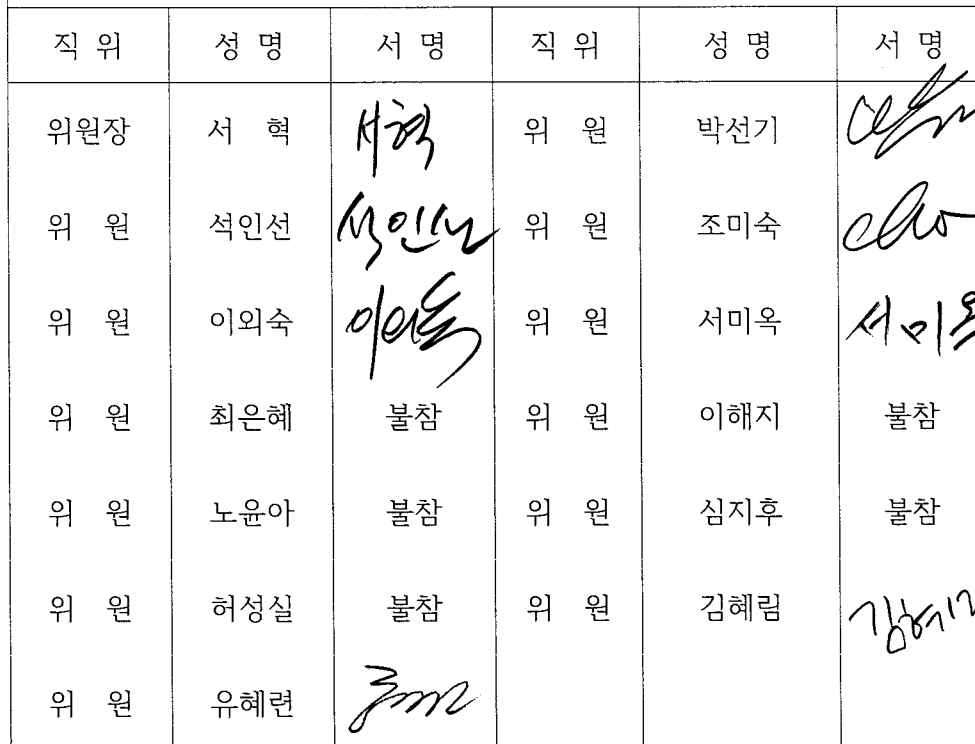 직 위 성 명 서 명 직 위 성 명 서 명
위원장 서 혁 서혁 위 원 박선기
위 원 석인선 석인선 위 원 조미숙 cho
위 원 이외숙 이외숙 위 원 서미옥 서미옥
위 원 최은혜 불참 위 원 이해지 불참
위 원 노윤아 불참 위 원 심지후 불참
위 원 허성실 불참 위 원 김혜림
위 원 유혜련